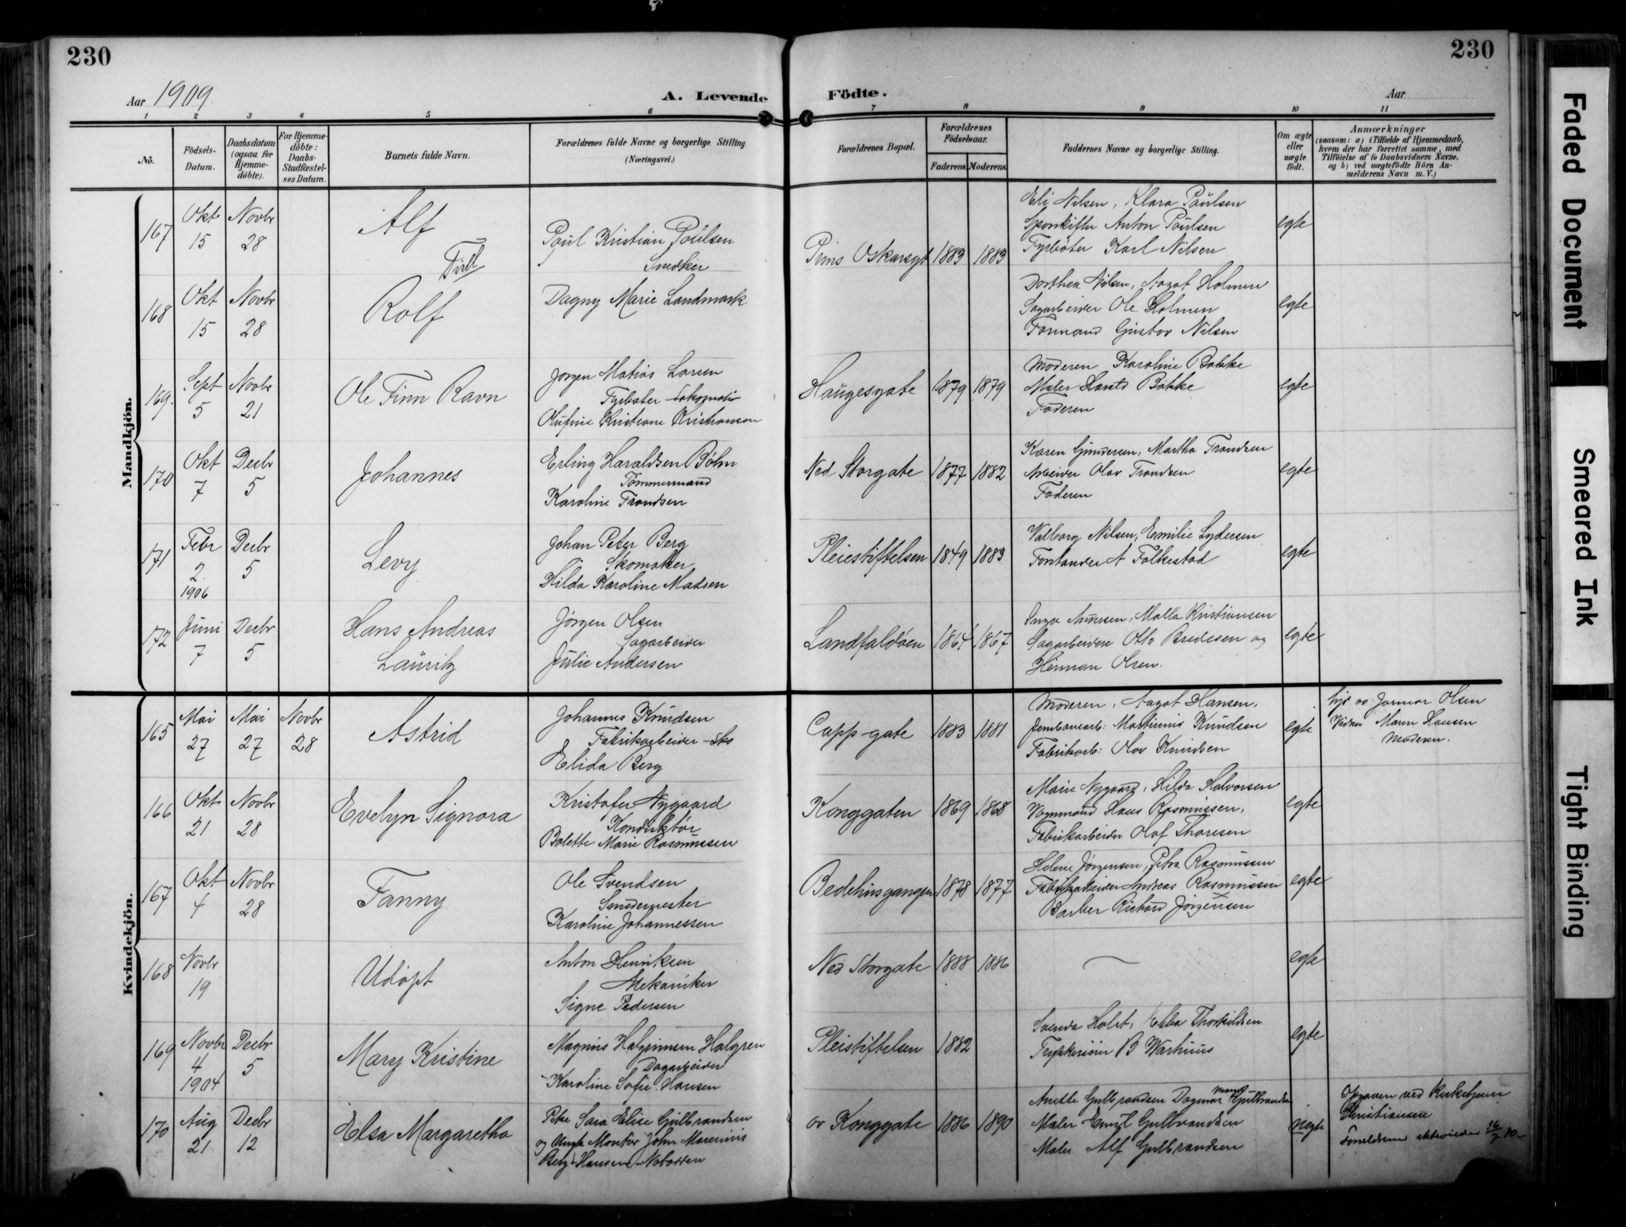 230
230
Aar 1909.
A. Levende Födte.
Aar
1 2 3 4 5 6 7 8 9 10 11
No.
Födsels-Datum.
Daabsdatum (ogsaa för Hjemmedöbte).
For Hjemmedöbte: Daabs-Stadfæstelses Datum.
Barnets fulde Navn.
Forældrenes fulde Navne og borgerlige Stilling. (Næringsvei.)
Forældrenes Bopæl.
Forældrenes Födselsaar.
Faderens Moderens
Faddernes Navne og borgerlige Stilling.
Om ægte eller uægte födt.
Anmærkninger
(saasom: a) i Tilfælde af Hjemmedaab, hvem der har forrettet samme, med Tilföielse af to Daabsvidners Navne, og b) ved uegtefödte Börn Anmelderens Navn m. V.)
Mandkjön.
167 Okt 15 Novbr 28
Alf
Tvill
Paul Kristian Poulsen
Snedker
Prins Oskarsgt 1883 1883
Elij Nilsen, Klara Poulsen
Anton Poulsen
Fyrböter Karl Nilsen
egte
168 Okt 15 Novbr 28
Rolf
Dagny Marie Landmark
Dorthea Nilsen, Aagot Holmen
Sagarbeider Ole Holmen
Formand Gustav Nilsen
egte
169. Sept 5 Novbr 21
Ole Finn Ravn
Jørgen Matias Larsen
Fyrbøter
Olufine Kristiane Kristiansen
Haugesgate 1879 1879
Moderen, Karoline Bakke
Maler Bakke
Faderen
egte
170 Okt 7 Decbr 5
Johannes
Erling Haraldsen Bøhn
Tømmermand
Karoline Trondsen
Ned Storgate 1877 1882
Karen Gundersen, Martha Trondsen
Arbeider Olav Trondsen
Faderen
egte
171 Febr 2. 1906 Decbr 5
Levy
Johan Peter Berg
Skomaker
Hilda Karoline Madsen
Pleiestiftelsen 1849 1883
Valborg Nilsen, Emilie Lydersen
Forstander A Folkestad
egte
172 Juni 7 Decbr 5
Hans Andreas Lauritz
Jørgen Olsen
Sagarbeider
Julie Andersen
Landfaldöen 1864 1867
Malla Kristiansen
Sagarbeidere Otto Bredesen og
Herman Olsen.
egte
Kvindekjön.
165 Mai 27 Mai 27 Novbr 28
Astrid
Johannes Knudsen
Fabrikarbeider
Elida Berg
Capp-gate 1883 1881
Moderen, Aagot Hansen,
Martinius Knudsen
Fabrikarb: Olav Knudsen
egte
Hjd av Jormor Olsen
Vidner Maren Hansen
Moderen.
166 Okt 21 Novbr 28
Evelyn Signora
Kristofer Nygaard
Konduktør
Bolette Marie Rasmussen
Konggaten 1869 1868
Marie Nygaard, Hilda Halvorsen
Vognmand Hans Rasmussen,
Fabrikarbeider Olof Thoresen
egte
167 Okt 4 Novbr 28
Fanny
Ole Svendsen
Smedmester
Karoline Johannessen
Bedehusgangen 1878 1877
Helene Jørgensen, Petra Rasmussen
Fabrikarbeider Andreas Rasmussen
Barber Rikard Jørgensen
egte
168 Novbr 19
Udøpt
Anton Henriksen
Mekaniker
Signe Pedersen
Ned Storgate 1888 1886
—
egte
169 Novbr 4 1904 Decbr 5
Mary Kristine
Magnus Halgrimsen Halgren
Dagarbeider
Karoline Sofie Hansen
Pleistiftelsen 1882
Svenda Holst, Ebba Thorkildsen
B Warhuus
egte
170 Aug 21 Decbr 12
Elsa Margaretha
Pike Sara Elise Gulbrandsen
og Ungk Montør John Marenius
Berg-Hansen, Notodden
øv Konggate 1886 1890
Anette Gulbrandsen Dagmar Gulbrandsen
Maler Emil Gulbrandsen
Maler Alf Gulbrandsen
uegte
Opgaven ved
Christiansen
Forældrene
Faded Document
Smeared Ink
Tight Binding